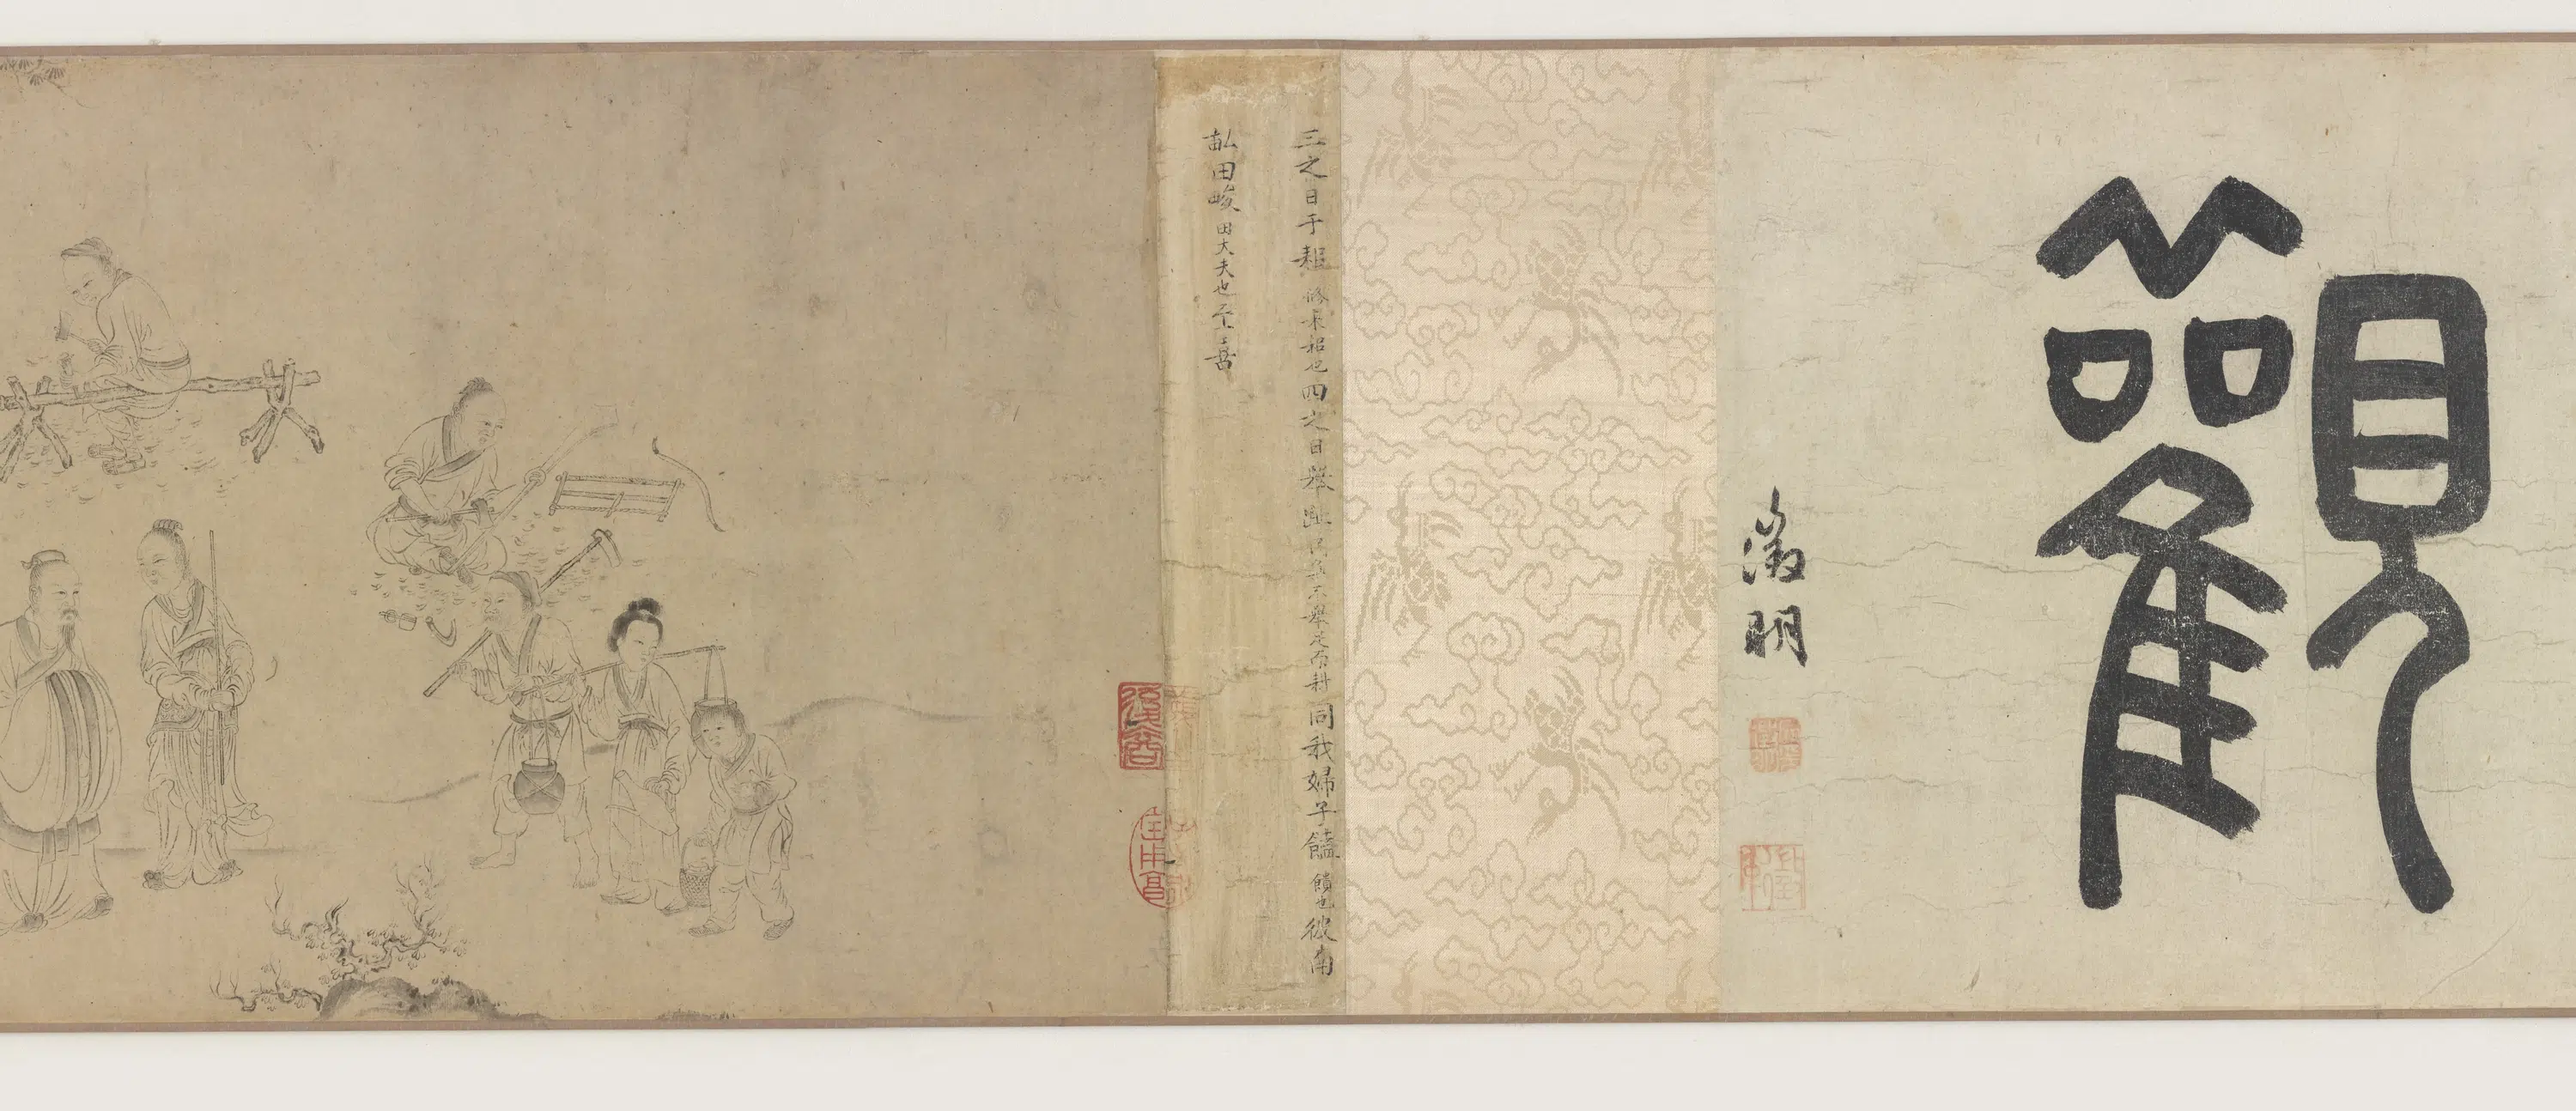 觀
徵明
三之日于耜修耒耜也四之日舉趾民無不舉足而耕同我婦子饁饋也彼南
畝田畯田大夫也至喜